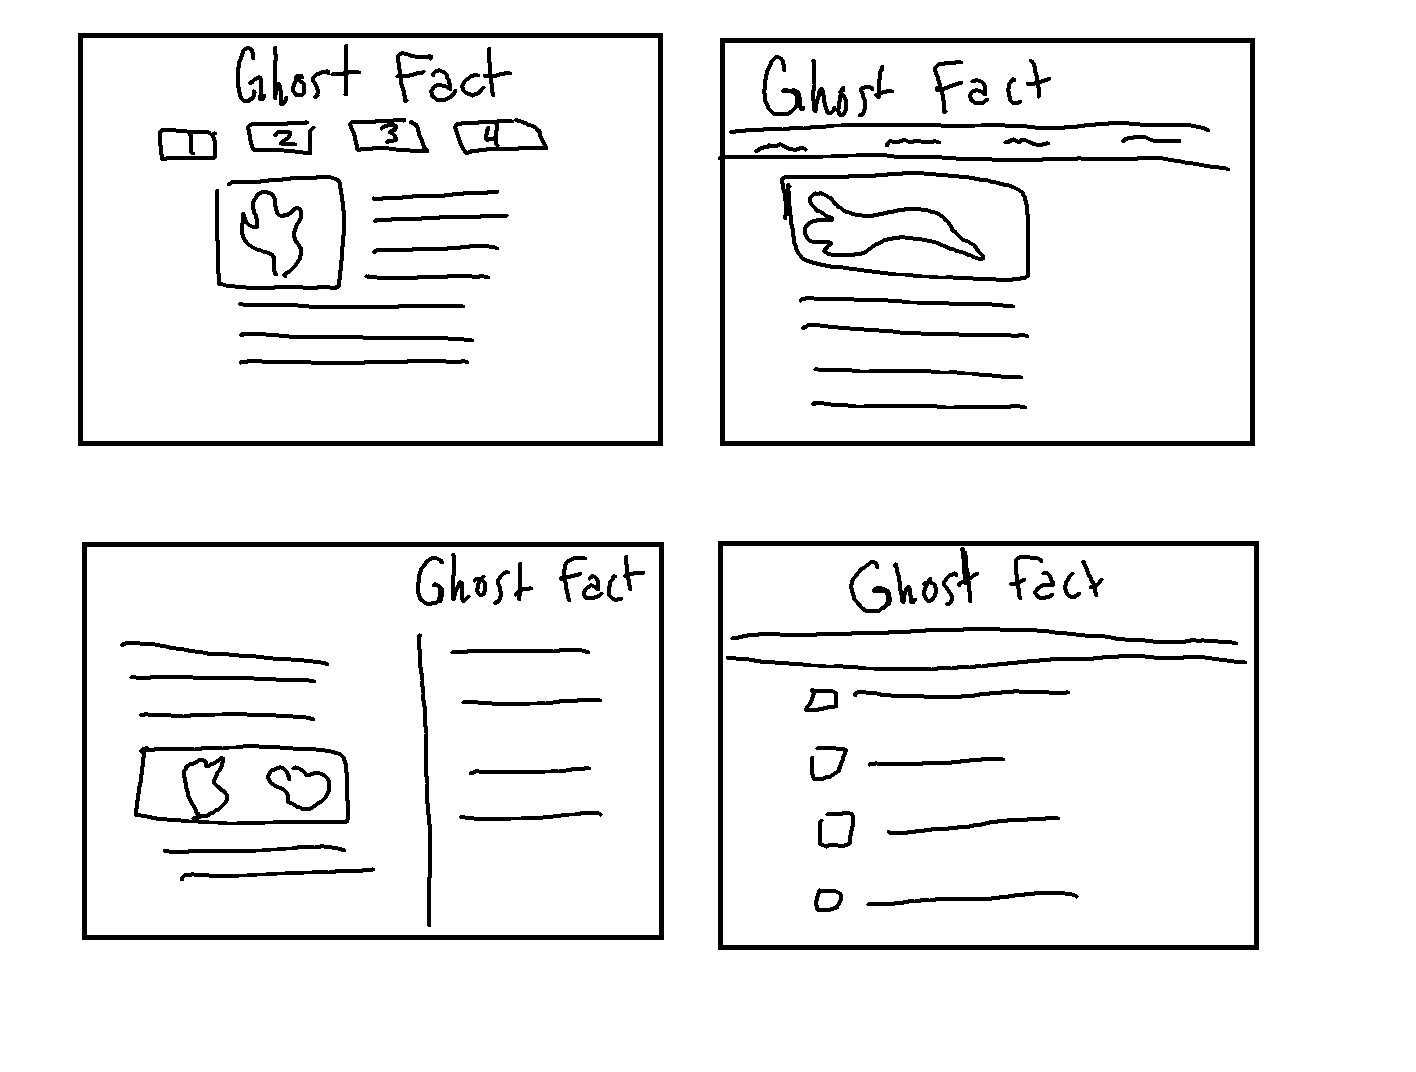 Ghost Fact
1 2 3 4
Ghost Fact
Ghost Fact
Ghost Fact